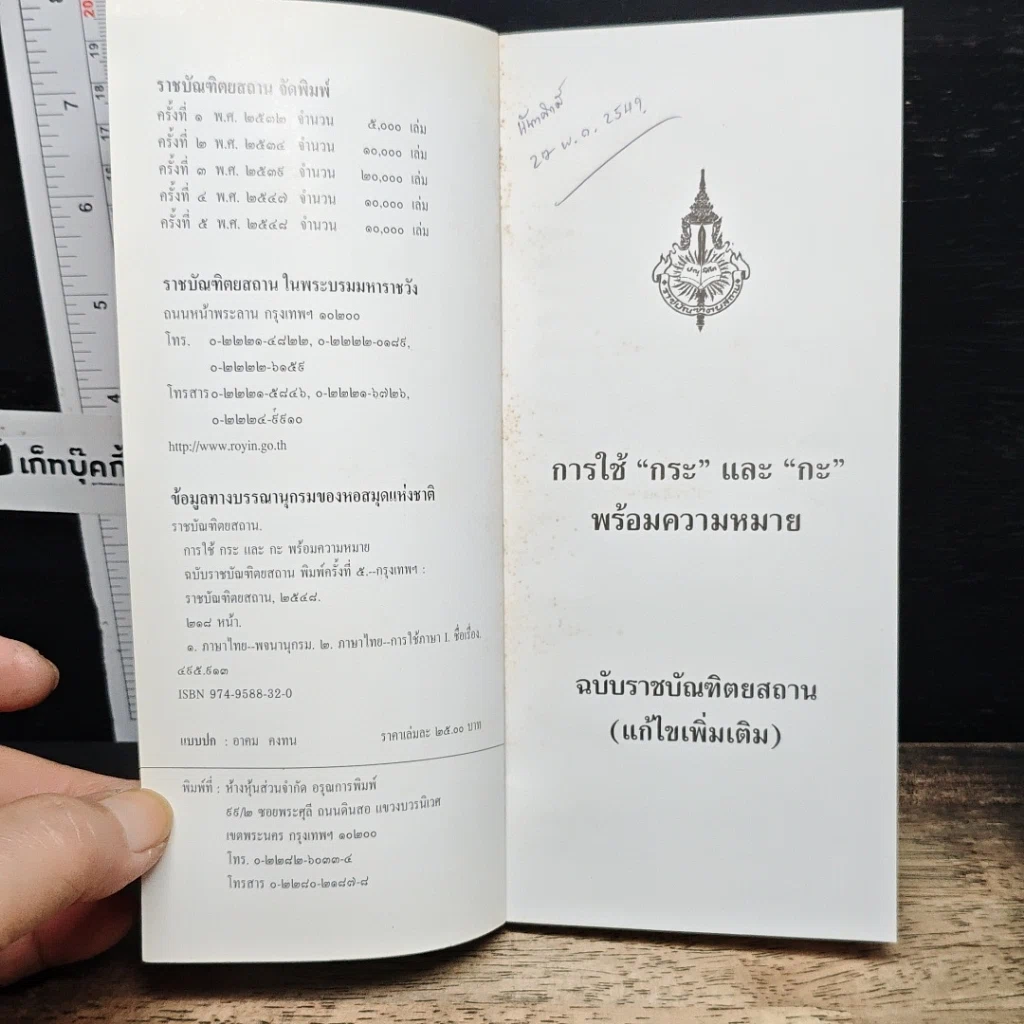 ราชบัณฑิตยสถาน จัดพิมพ์
ครั้งที่ ๑ พ.ศ. ๒๕๓๒ จำนวน ๕,๐๐๐ เล่ม
ครั้งที่ ๒ พ.ศ. ๒๕๓๔ จำนวน ๑๐,๐๐๐ เล่ม
ครั้งที่ ๓ พ.ศ. ๒๕๓๙ จำนวน ๒๐,๐๐๐ เล่ม
ครั้งที่ ๔ พ.ศ. ๒๕๔๗ จำนวน ๑๐,๐๐๐ เล่ม
ครั้งที่ ๕ พ.ศ. ๒๕๔๘ จำนวน ๑๐,๐๐๐ เล่ม
ราชบัณฑิตยสถาน ในพระบรมมหาราชวัง
ถนนหน้าพระลาน กรุงเทพฯ ๑๐๒๐๐
โทร. ๐-๒๒๒๑-๔๘๒๒, ๐-๒๒๒๒-๐๑๘๙,
๐-๒๒๒๒-๖๑๕๙
โทรสาร ๐-๒๒๒๑-๕๘๔๖, ๐-๒๒๒๑-๖๗๒๖,
๐-๒๒๒๔-๙๙๑๐
http://www.royin.go.th
ข้อมูลทางบรรณานุกรมของหอสมุดแห่งชาติ
ราชบัณฑิตยสถาน.
การใช้ กระ และ กะ พร้อมความหมาย
ฉบับราชบัณฑิตยสถาน พิมพ์ครั้งที่ ๕.--กรุงเทพฯ :
ราชบัณฑิตยสถาน, ๒๕๔๘.
๒๑๘ หน้า.
๑. ภาษาไทย--พจนานุกรม. ๒. ภาษาไทย--การใช้ภาษา I. ชื่อเรื่อง.
๔๙๕.๙๑๓
ISBN 974-9588-32-0
แบบปก : อาคม คงทน ราคาเล่มละ ๒๕.๐๐ บาท
พิมพ์ที่ : ห้างหุ้นส่วนจำกัด อรุณการพิมพ์
๙๙/๒ ซอยพระศุลี ถนนดินสอ แขวงบวรนิเวศ
เขตพระนคร กรุงเทพฯ ๑๐๒๐๐
โทร. ๐-๒๒๘๒-๖๐๓๓-๔
โทรสาร ๐-๒๒๘๐-๒๑๘๗-๘
พ.ค. 2549
ราชบัณฑิตยสถาน
การใช้ “กระ” และ “กะ”
พร้อมความหมาย
ฉบับราชบัณฑิตยสถาน
(แก้ไขเพิ่มเติม)
เก็ทบุ๊คกี้
20
19
18
17
7
6
5
4